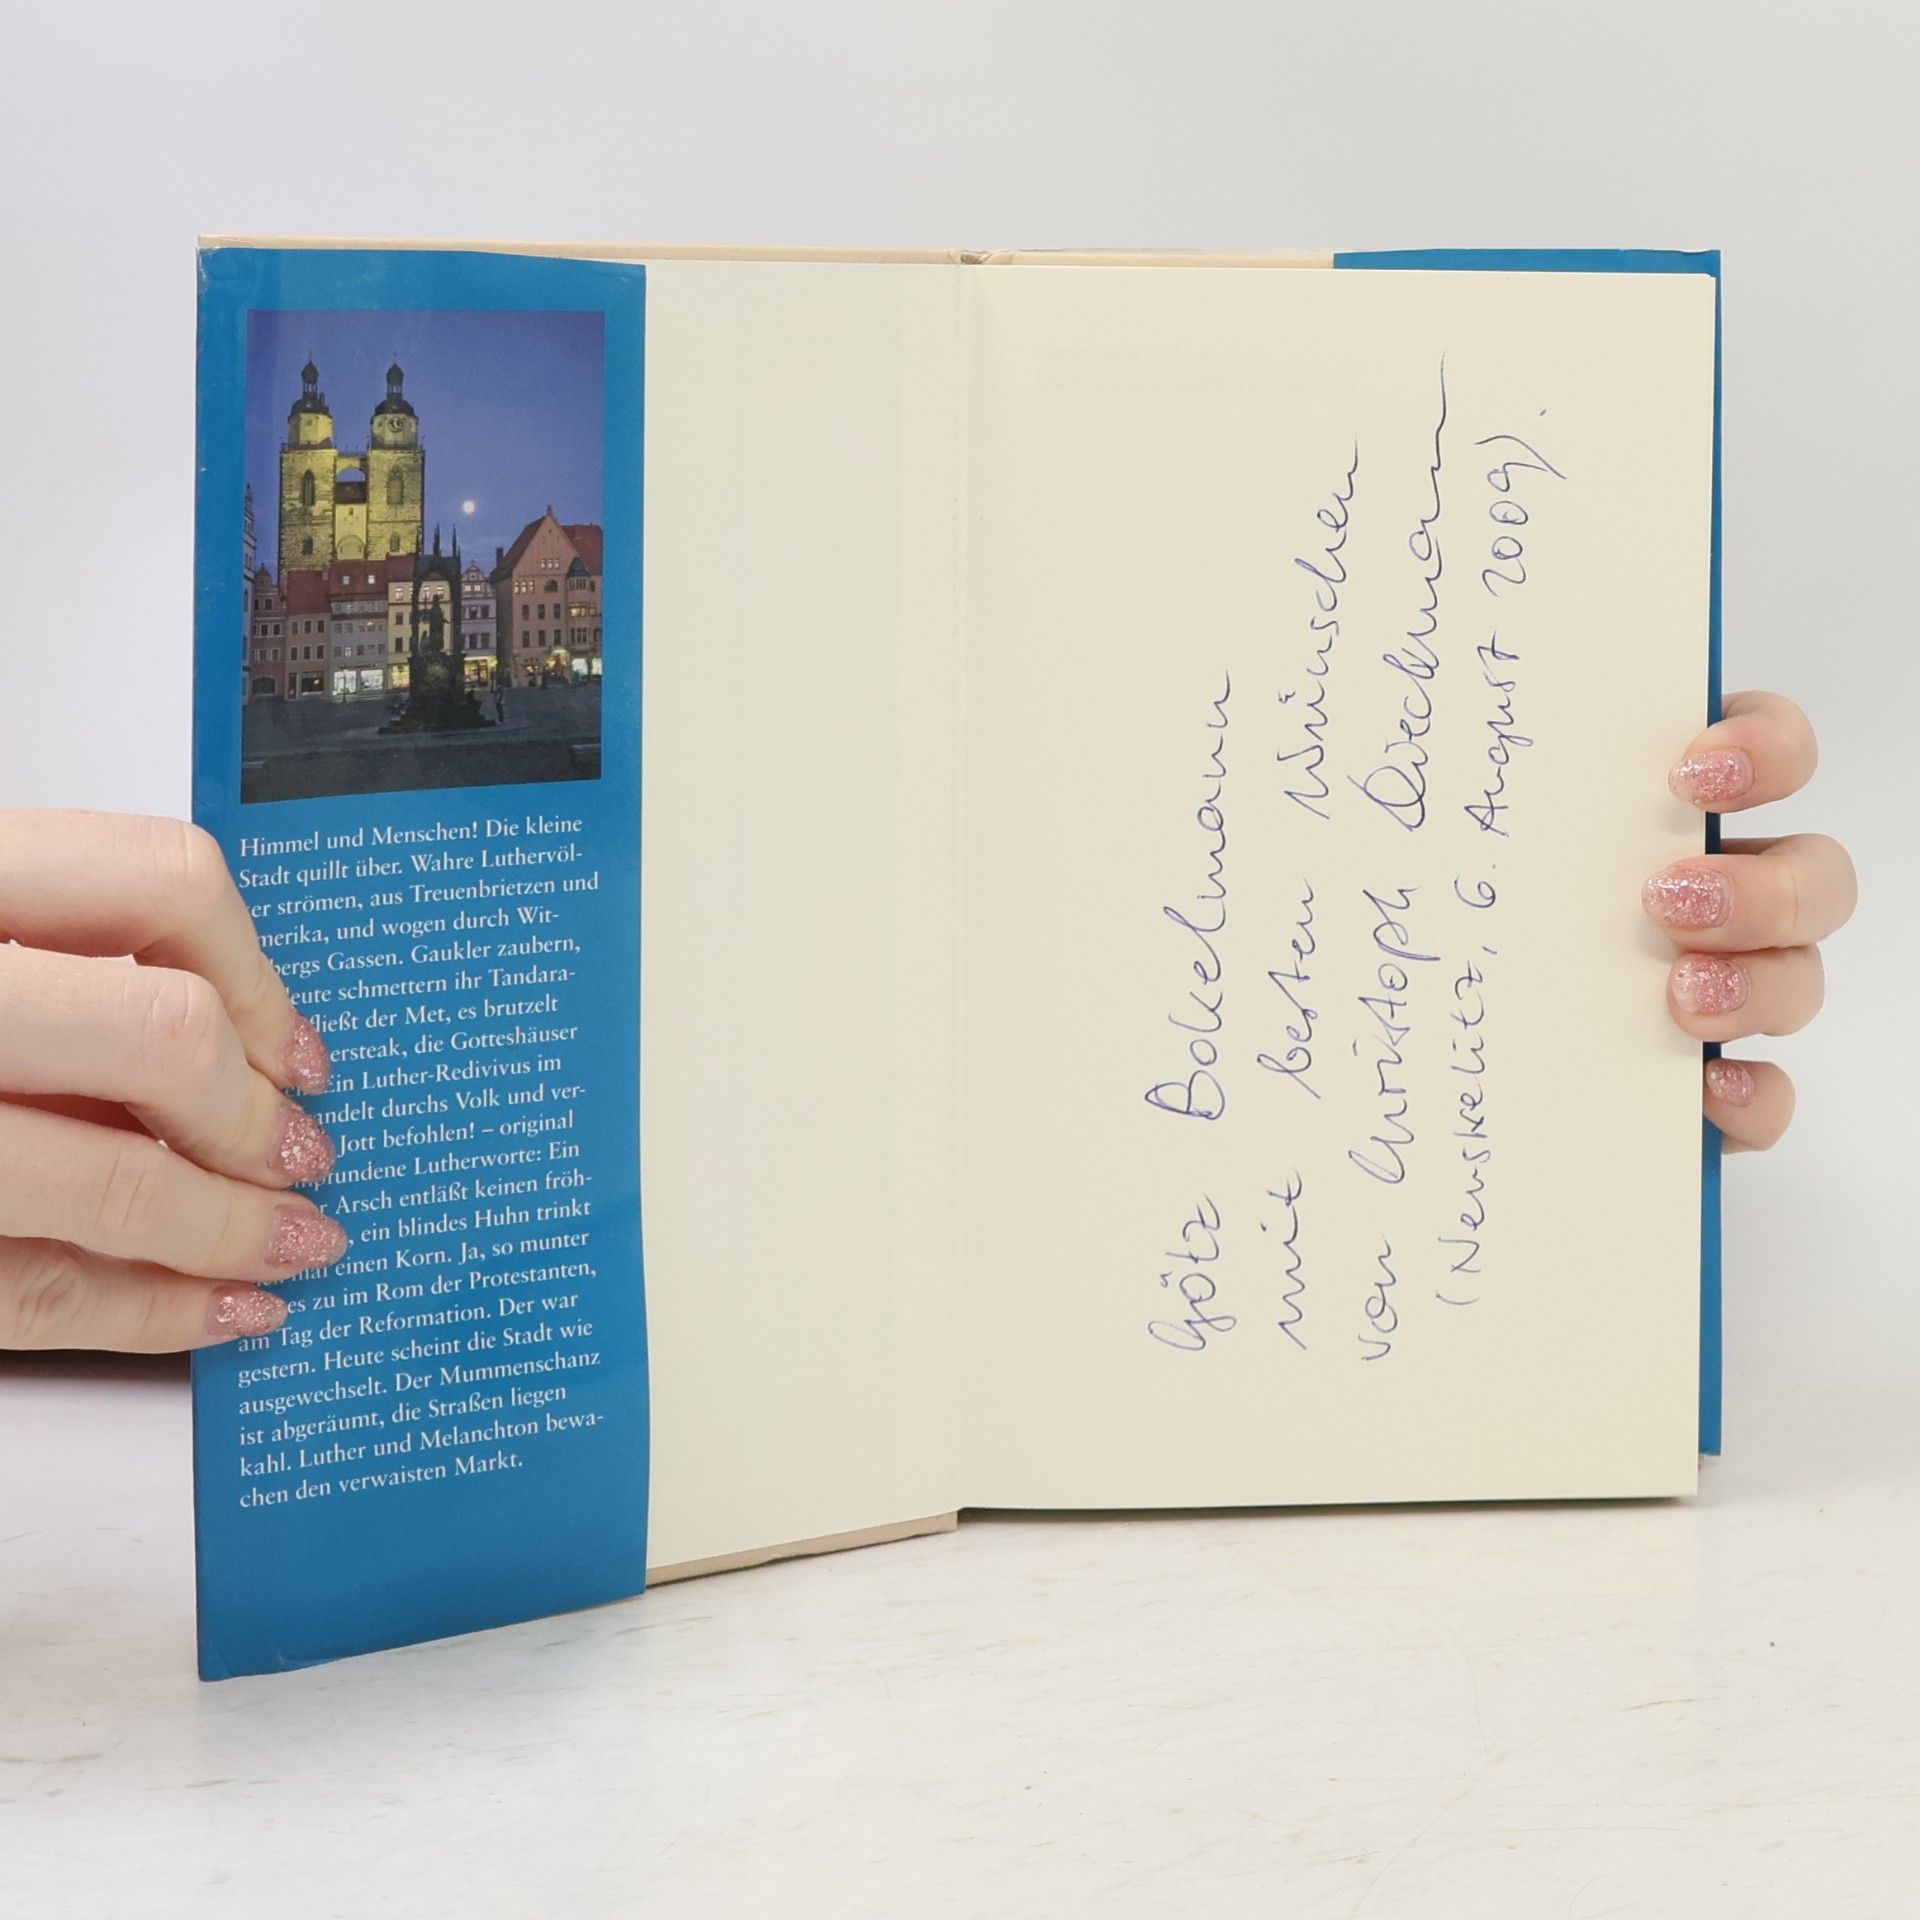 Himmel und Menschen! Die kleine
Stadt quillt über. Wahre Luthervöl-
er strömen, aus Treuenbrietzen und
merika, und wogen durch Wit-
bergs Gassen. Gaukler zaubern,
leute schmettern ihr Tandara-
fließt der Met, es brutzelt
ersteak, die Gotteshäuser
Ein Luther-Redivivus im
andelt durchs Volk und ver-
Jott befohlen! – original
prundene Lutherworte: Ein
r Arsch entläßt keinen fröh-
, ein blindes Huhn trinkt
mal einen Korn. Ja, so munter
es zu im Rom der Protestanten,
am Tag der Reformation. Der war
gestern. Heute scheint die Stadt wie
ausgewechselt. Der Mummenschanz
ist abgeräumt, die Straßen liegen
kahl. Luther und Melanchton bewa-
chen den verwaisten Markt.
Götz Bokelmann
mit besten Wünschen
von Christoph Dieckmann
(Neustrelitz, 6. August 2009).